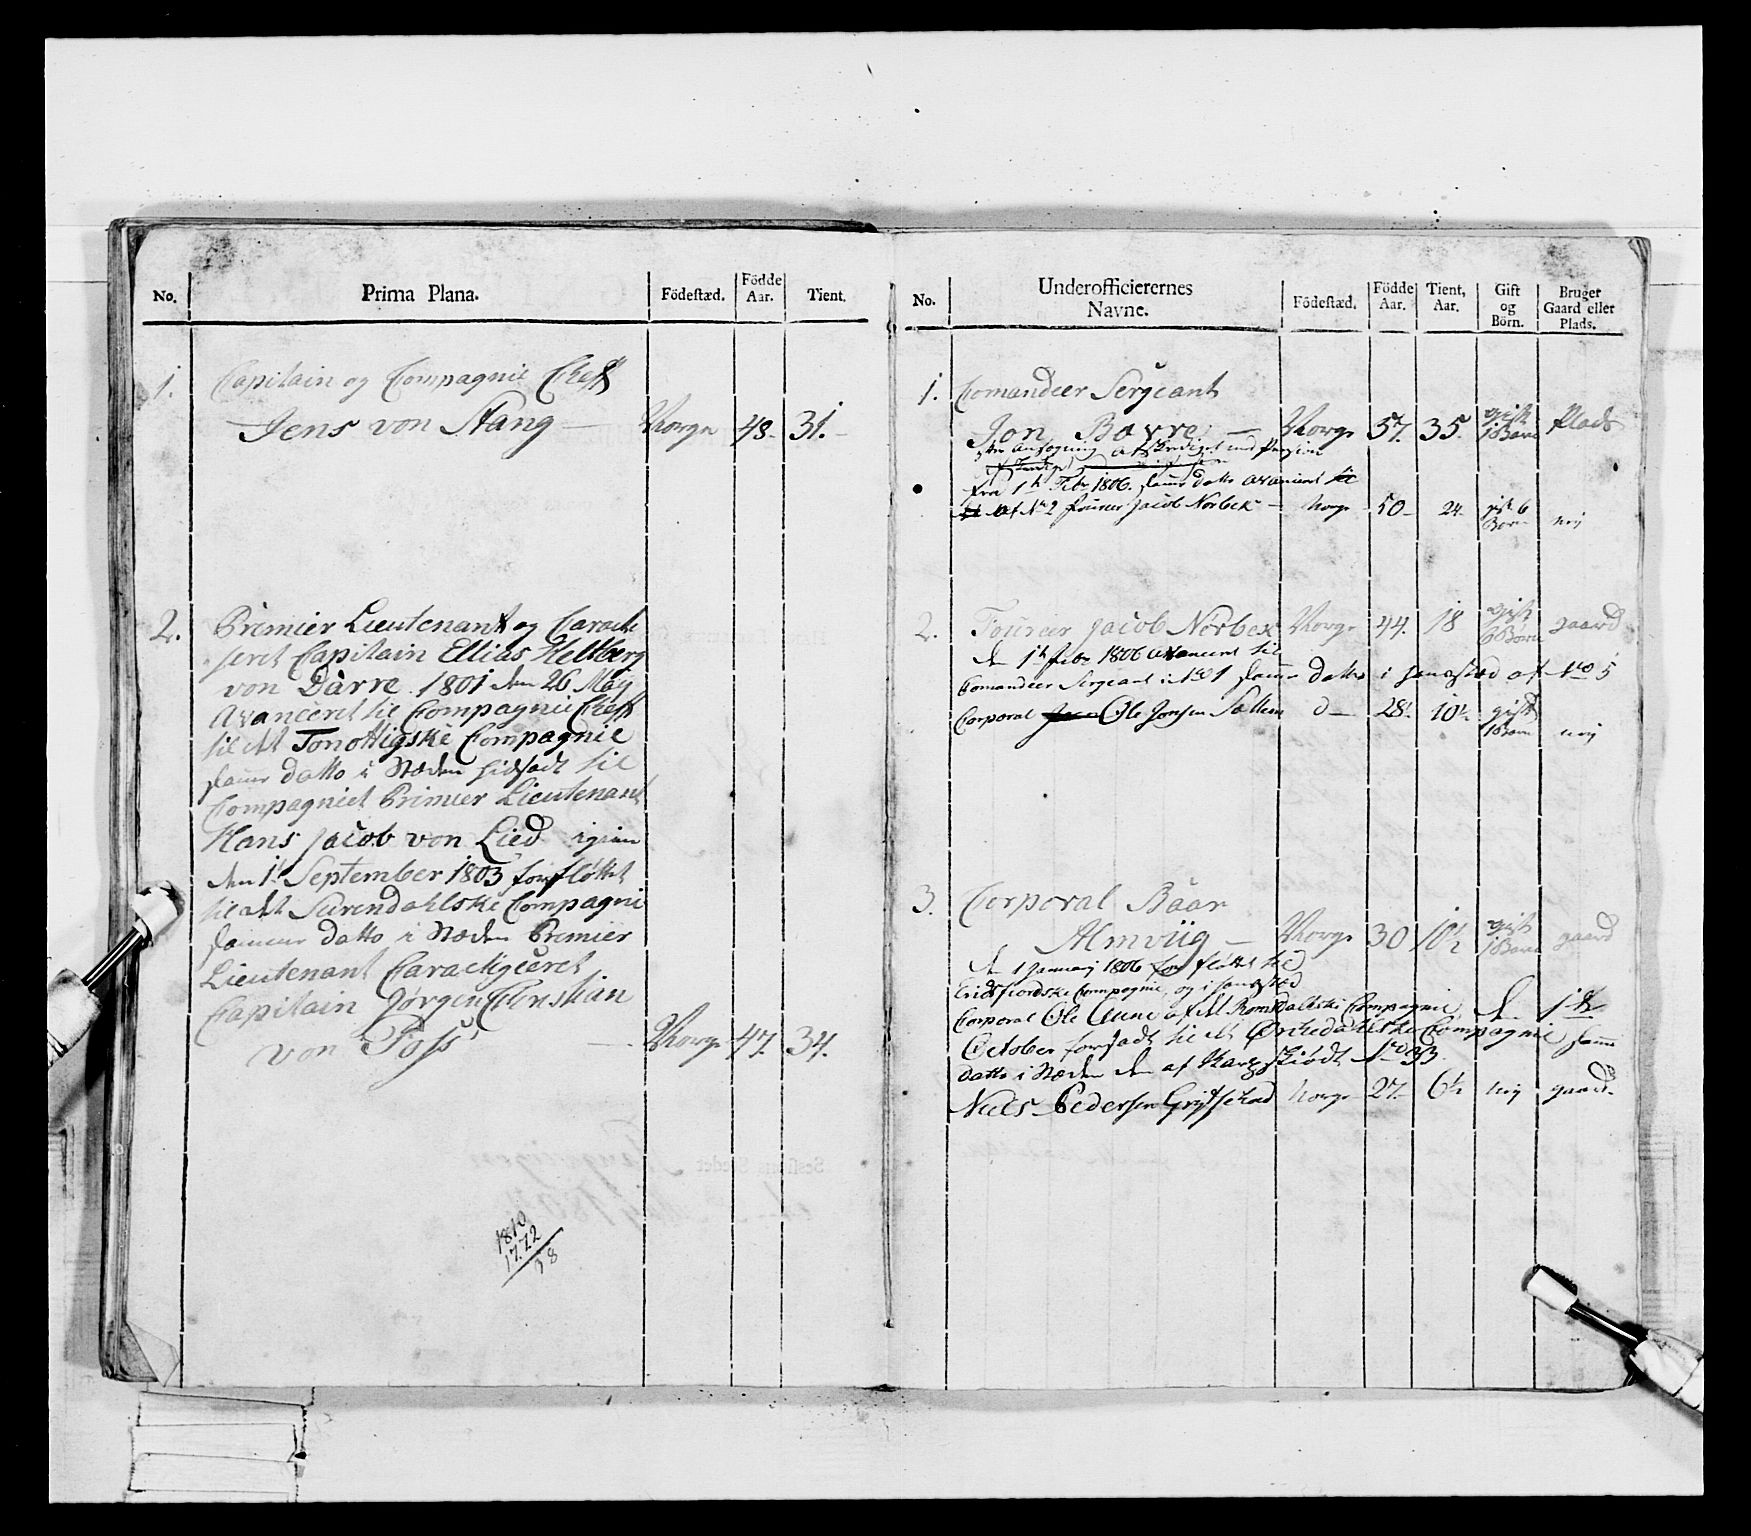 No. Prima Plana. Födestæd. Födde Aar. Tient.
1. Capitain og Compagnie Cheff
Jens von Stang — Norge 48 - 31. -
2. Premier Lieutenant og Caracte
seret Capitain Ellias Heltberg
von Darre 1801 den 26 May
Avanceret til Compagnie Cheff
til det Tonottigske Compagnie
samme datto i Stæden hidsadt til
Compagniet Primier Lieutenant
Hans Jacob von Lied igien
den 1t September 1803 forfløttet
til det Surendahlske Compagni
samme datto i Stæden Premier
Lieutenant Caractigseret
Capitain Jørgen Christian
von Foss — Norge 47. 34.
1810
1772
38
No. Underofficierernes Navne. Födestæd. Födde Aar. Tient, Aar. Gift og Börn. Bruger Gaard eller Plads.
1. Comandeer Sergeant
Jon Bovre — Norge 57. 35. gift 1 Barn Plads
efter Ansøgning afskediget med Pension
fra 1t Febr 1806. samme datto avanceret
af No 2 fourier Jacob Norbek — Norge 50 - 24 - gift 6 Børn nej
2. Foureer Jacob Norbek Norge 44. 18 gift 6 Børn gaard
den 1t febr 1806 avanceret til
Comandeer Sergeant i No 1 samme datto i hansstæd af No 5
Corporal Ole Jonsen Sættem d — 28 10½ gift 1 Barn nej
3. Corporal Baar
Almviig — Norge 30 10½ gift 1 Barn gaard
den 1 Januarj 1806 forfløttet til
Eridsfiordske Compagnie, og i hansstæd
Corporal Ole Aune af det Romsdalske Compagnie, d. 1t
October forsadt til det Ørkedalske Compagnie samme
datto i Stæden den af Karpskiødt No 33.
Niels Pedersen Grydsetad Norge 27 - 6½ nej gaard